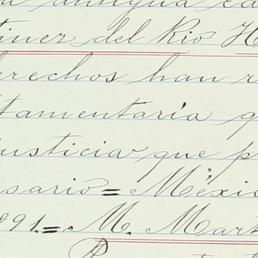 antigua ca
tiner del Rio H
erechos han r
tamentaría q
justicia que p
sario = Méxic
891. = M. Mart